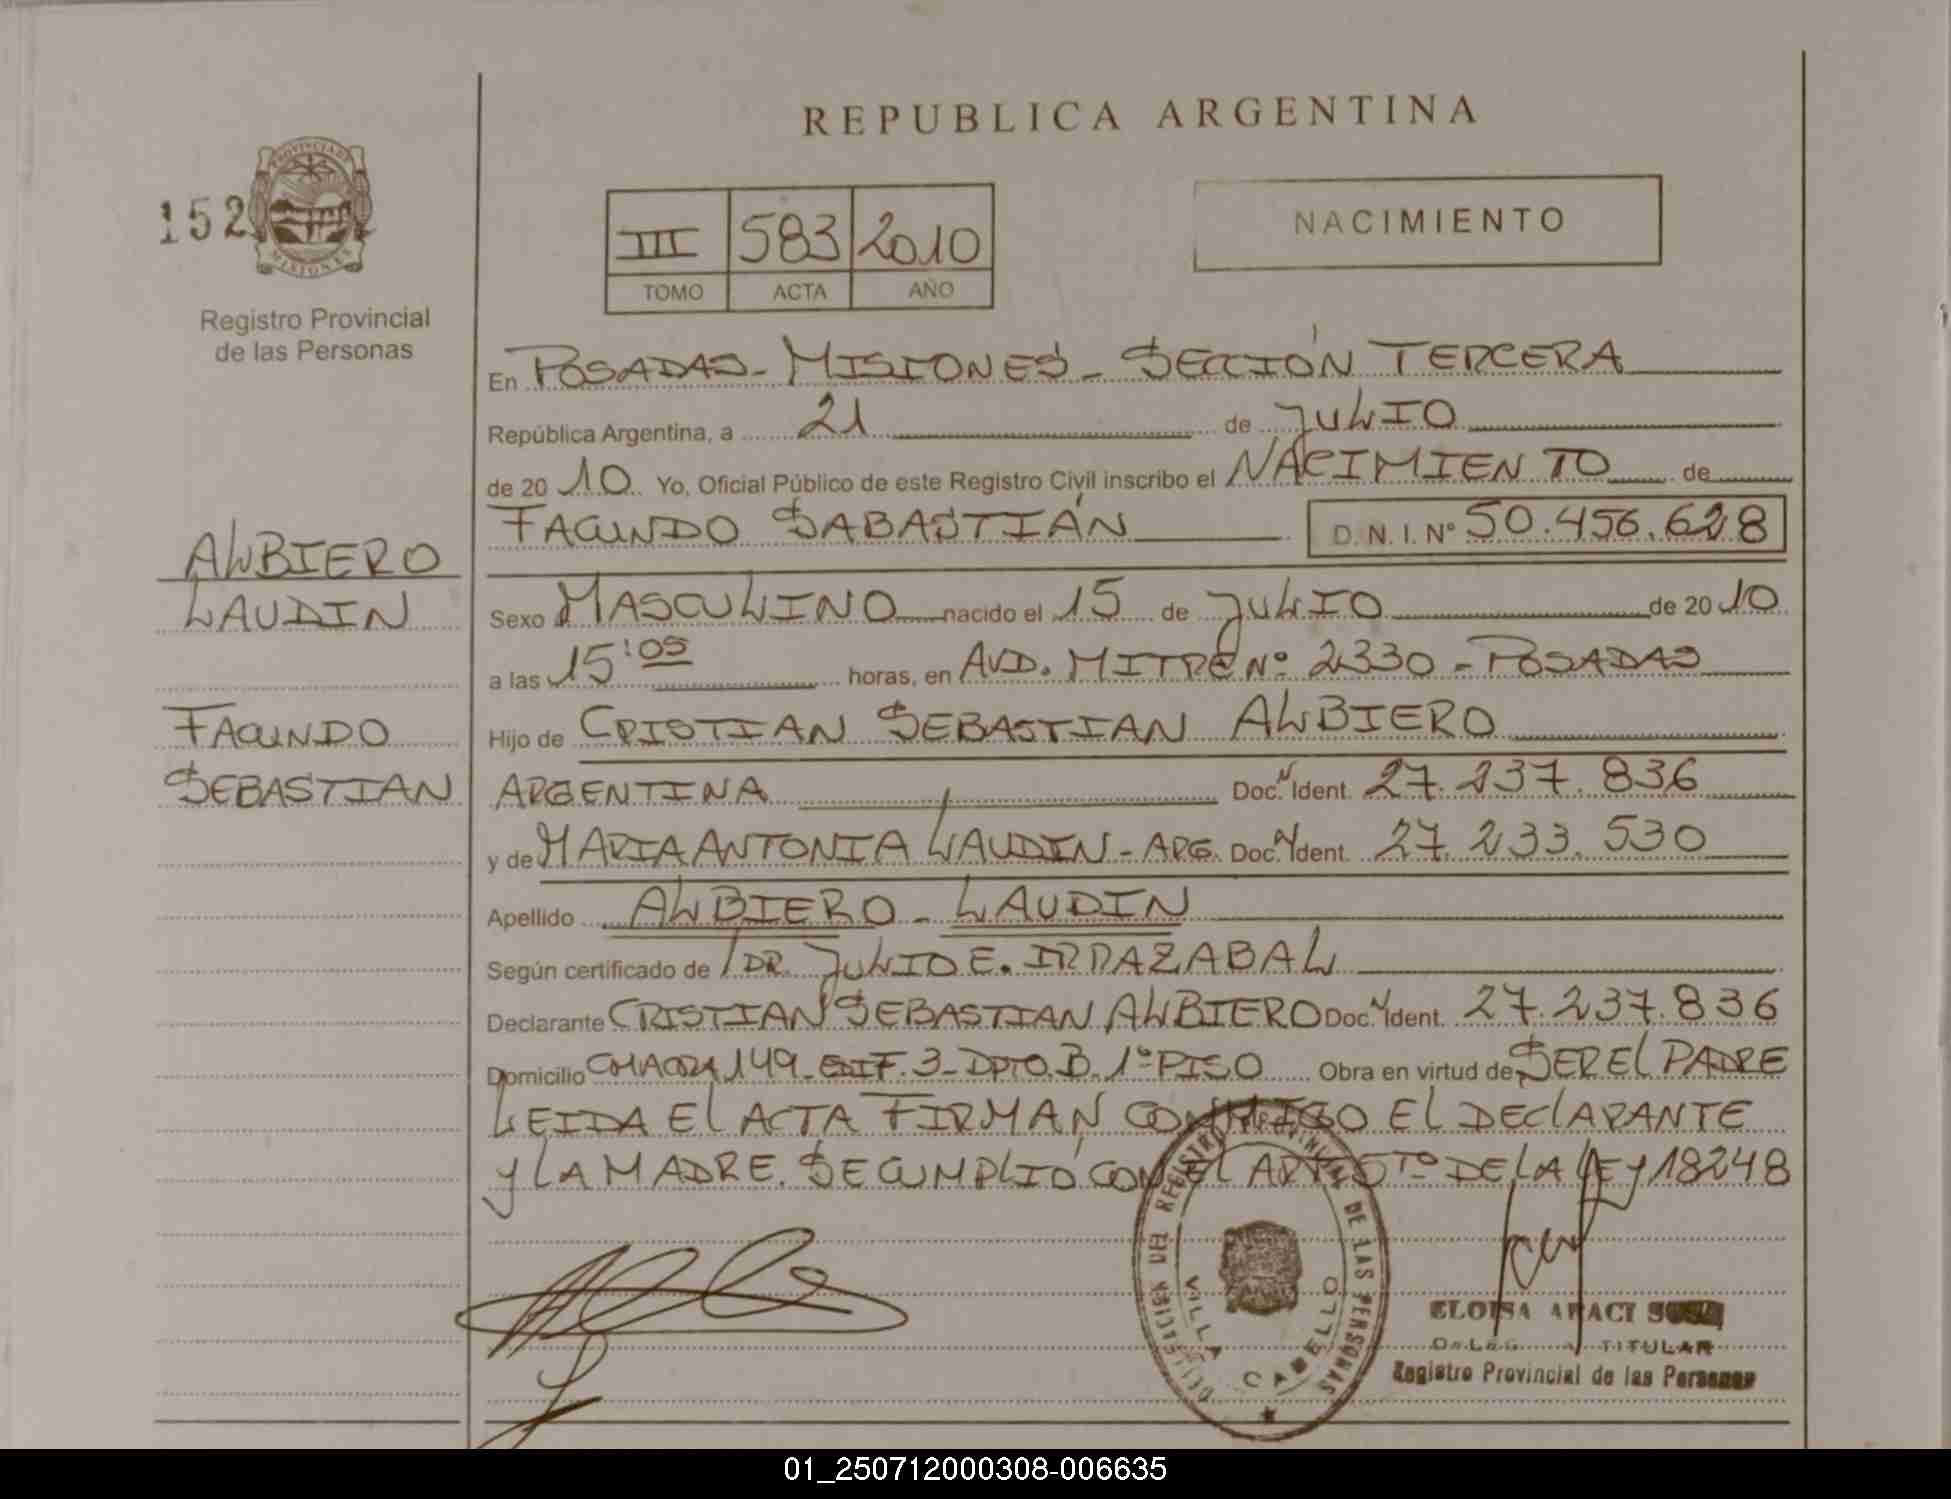 REPUBLICA ARGENTINA
152
PROVINCIA DE MISIONES
Registro Provincial
de las Personas
III 583 2010
TOMO ACTA AÑO
NACIMIENTO
En POSADAS - MISIONES - SECCIÓN TERCERA
República Argentina, a 21 de JULIO
de 20 10 Yo, Oficial Público de este Registro Civil inscribo el NACIMIENTO de
FACUNDO SABASTIÁN D.N.I. Nº 50.456.628
ALBIERO
LAUDIN
FACUNDO
SEBASTIAN
Sexo MASCULINO nacido el 15 de JULIO de 20 10
a las 15:05 horas, en AVD. MITRE Nº 2330 - POSADAS
Hijo de CRISTIAN SEBASTIAN ALBIERO
ARGENTINA Doc. Ident. 27.237.836
y de MARIA ANTONIA LAUDIN - ARG. Doc. Ident. 27.233.530
Apellido ALBIERO - LAUDIN
Según certificado de DR. JULIO E. IRRAZABAL
Declarante CRISTIAN SEBASTIAN ALBIERO Doc. Ident. 27.237.836
Domicilio CHACRA 149 - EDIF. 3 - DPTO. B. 1º PISO Obra en virtud de SER EL PADRE
LEIDA EL ACTA FIRMAN CONMIGO EL DECLARANTE
Y LA MADRE. SE CUMPLIÓ CON EL ART 5TO DE LA LEY 18248
DELEGACION DEL REGISTRO PROVINCIAL DE LAS PERSONAS
VILLA CABELLO
ELOISA ARACI SOSA
TITULAR
Registro Provincial de las Personas
01_250712000308-006635